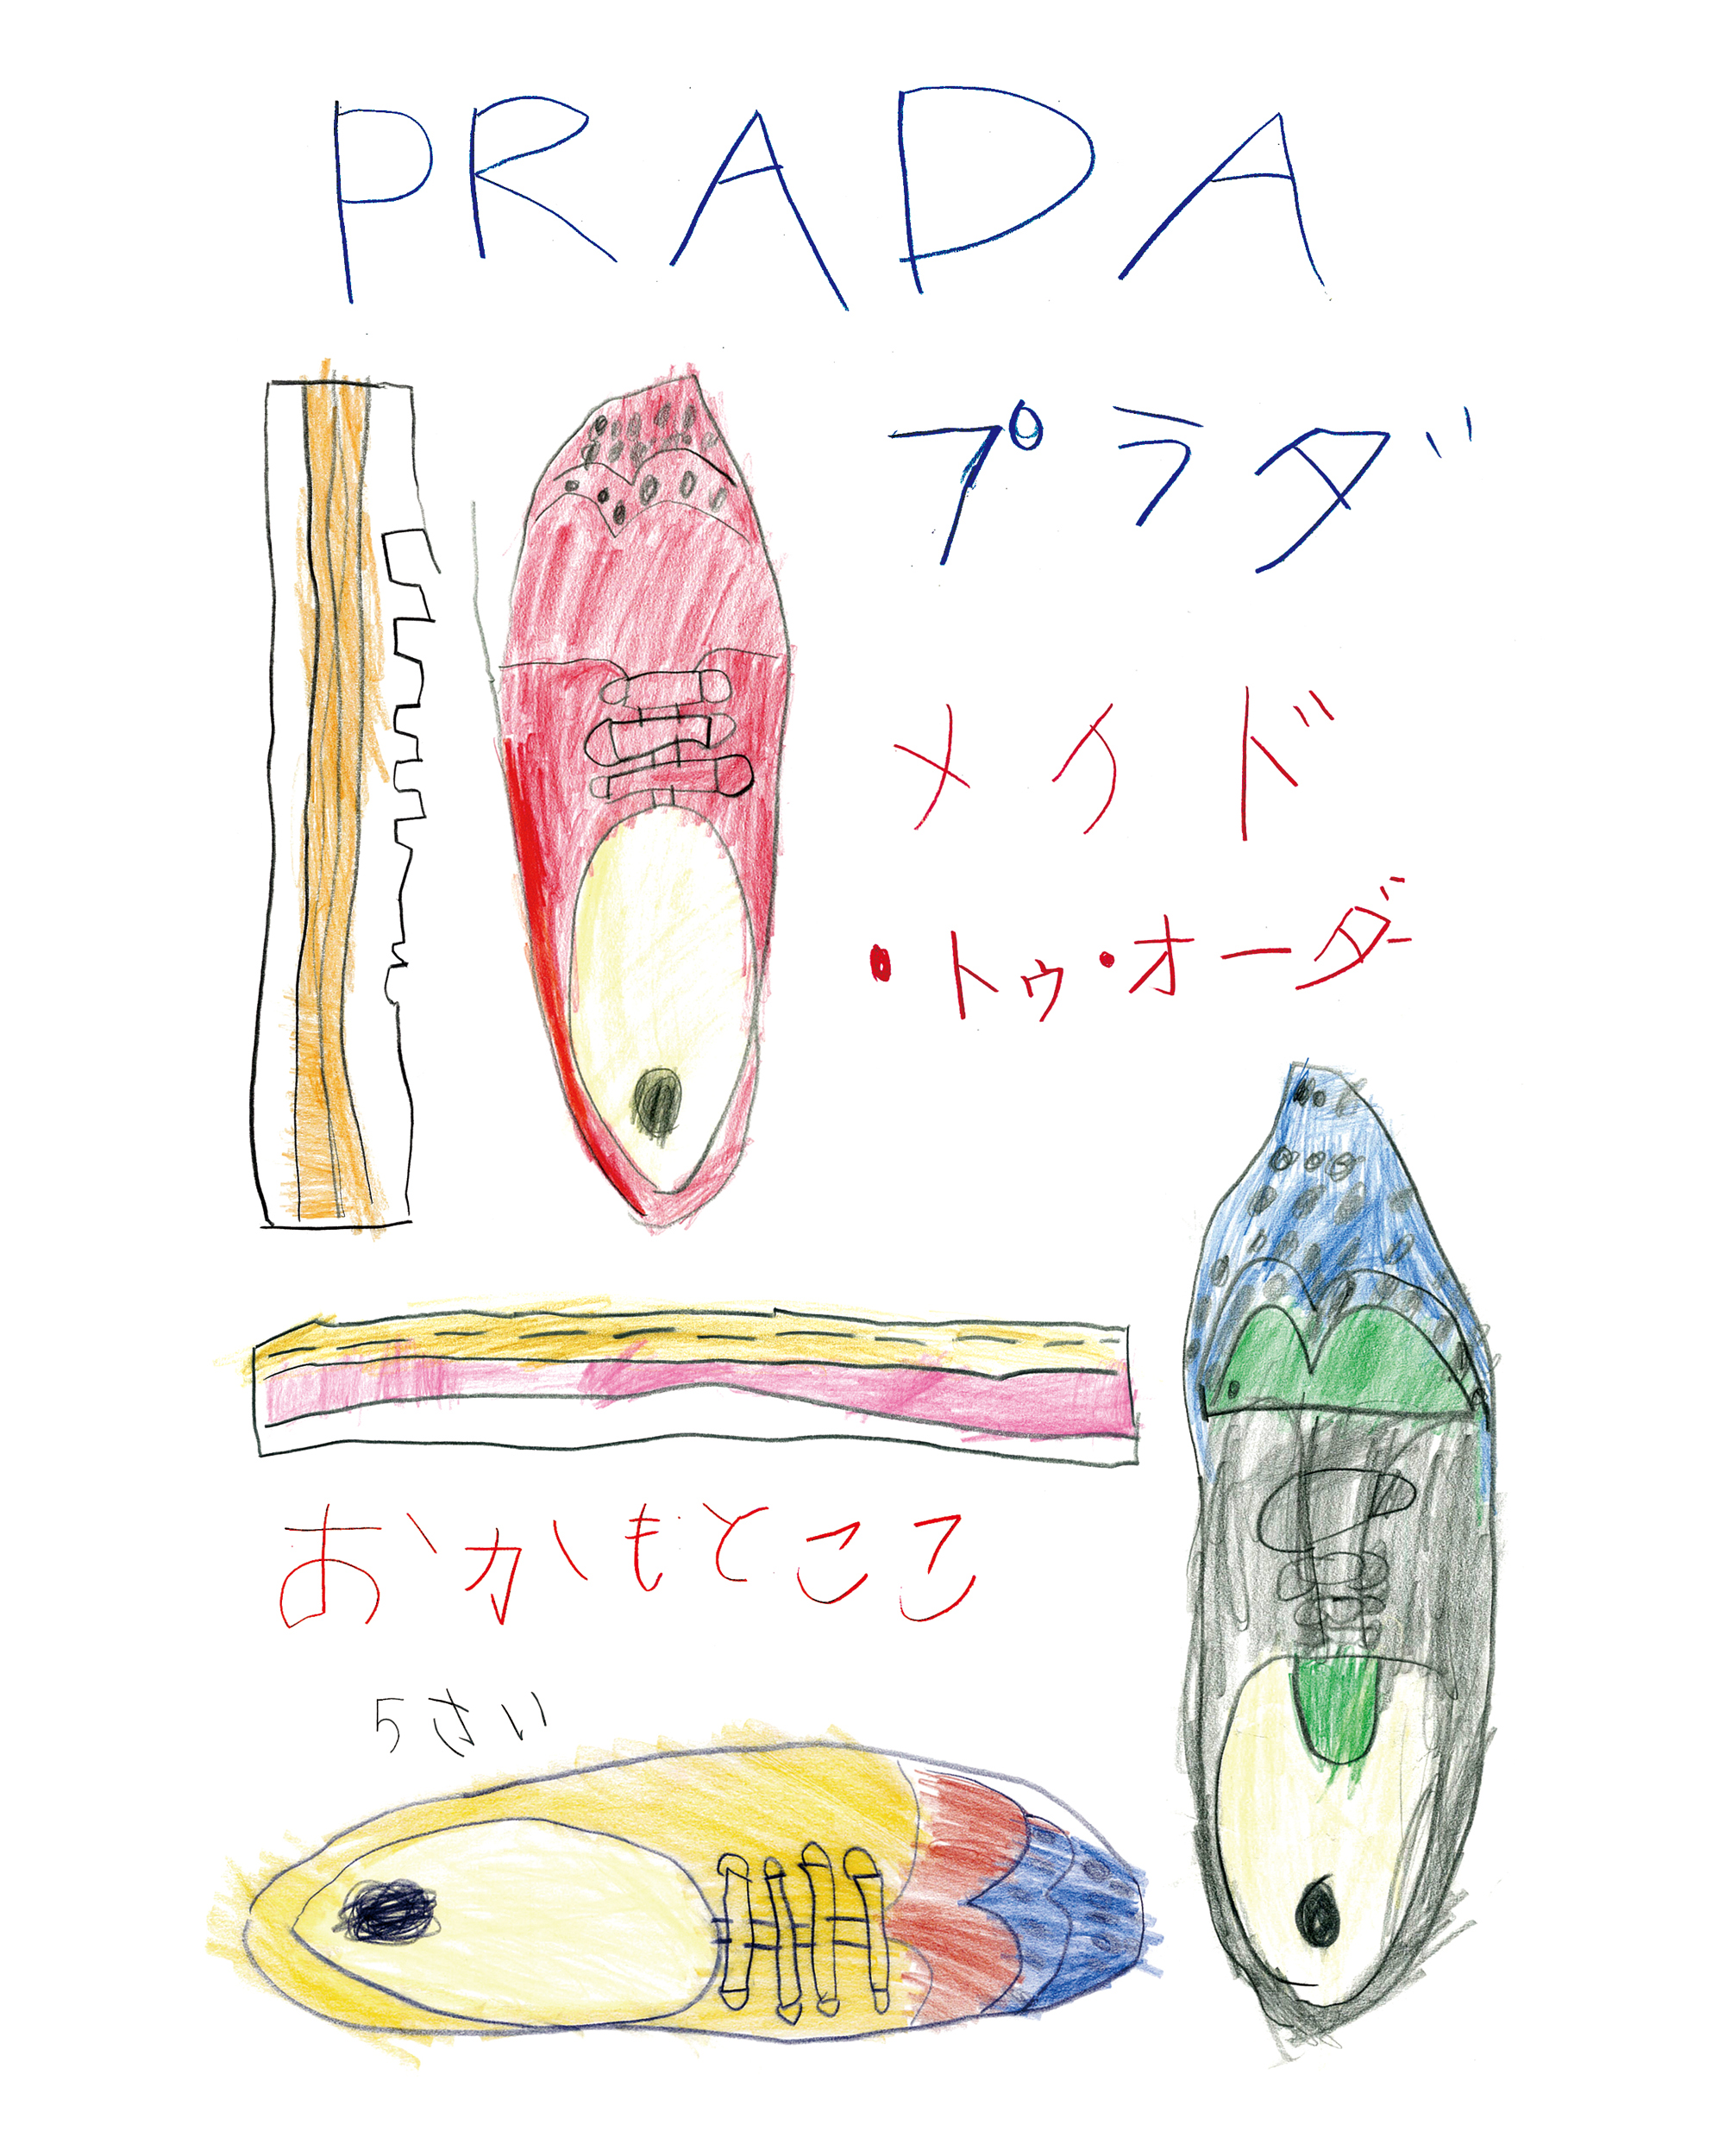 PRADA
プラダ
メイド
・トゥ・オーダー
おかもとここ
5さい